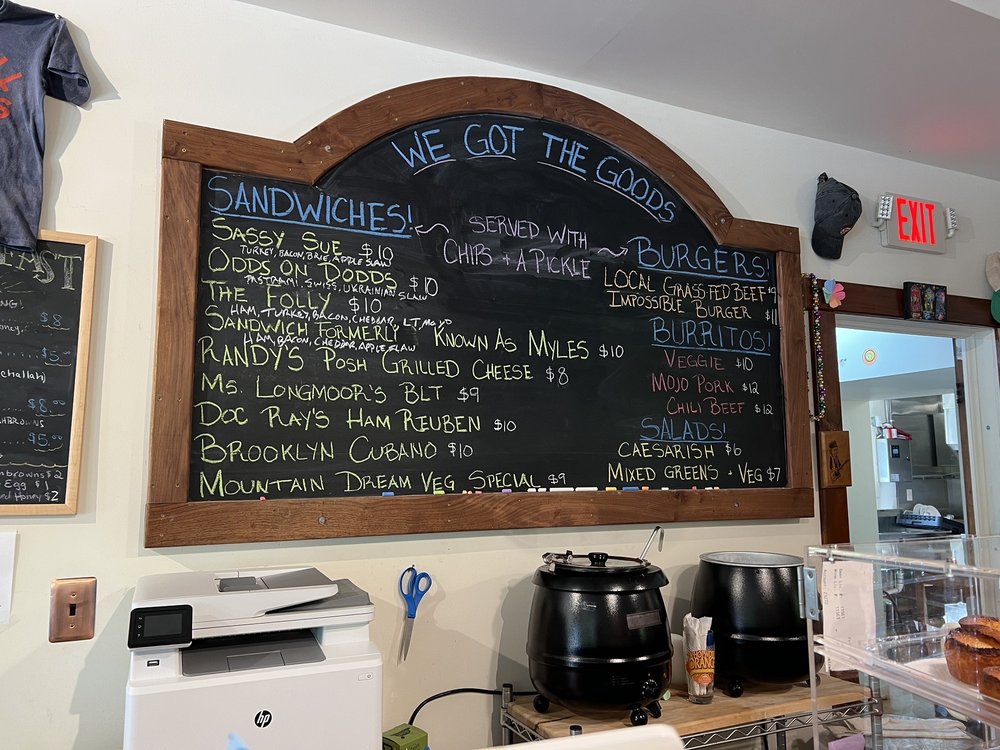 WE GOT THE GOODS
SANDWICHES!
SERVED WITH
CHIPS + A PICKLE
SASSY SUE $10
TURKEY, BACON, BRIE, APPLE SLAW
ODDS ON DODDS $10
PASTRAMI, SWISS, UKRAINIAN SLAW
THE FOLLY $10
HAM, TURKEY, BACON, CHEDDAR, LT, MOJO
SANDWICH FORMERLY KNOWN AS MYLES $10
HAM, BACON, CHEDDAR, APPLE SLAW
RANDY'S POSH GRILLED CHEESE $8
MS. LONGMOOR'S BLT $9
DOC RAY'S HAM REUBEN $10
BROOKLYN CUBANO $10
MOUNTAIN DREAM VEG SPECIAL $9
BURGERS!
LOCAL GRASS-FED BEEF $9
IMPOSSIBLE BURGER $11
BURRITOS!
VEGGIE $10
MOJO PORK $12
CHILI BEEF $12
SALADS!
CAESARISH $6
MIXED GREENS + VEG $7
EXIT
$8
$5.00
challah)
$8.00
$5.00
$2
Egg $1
Honey $2
hp